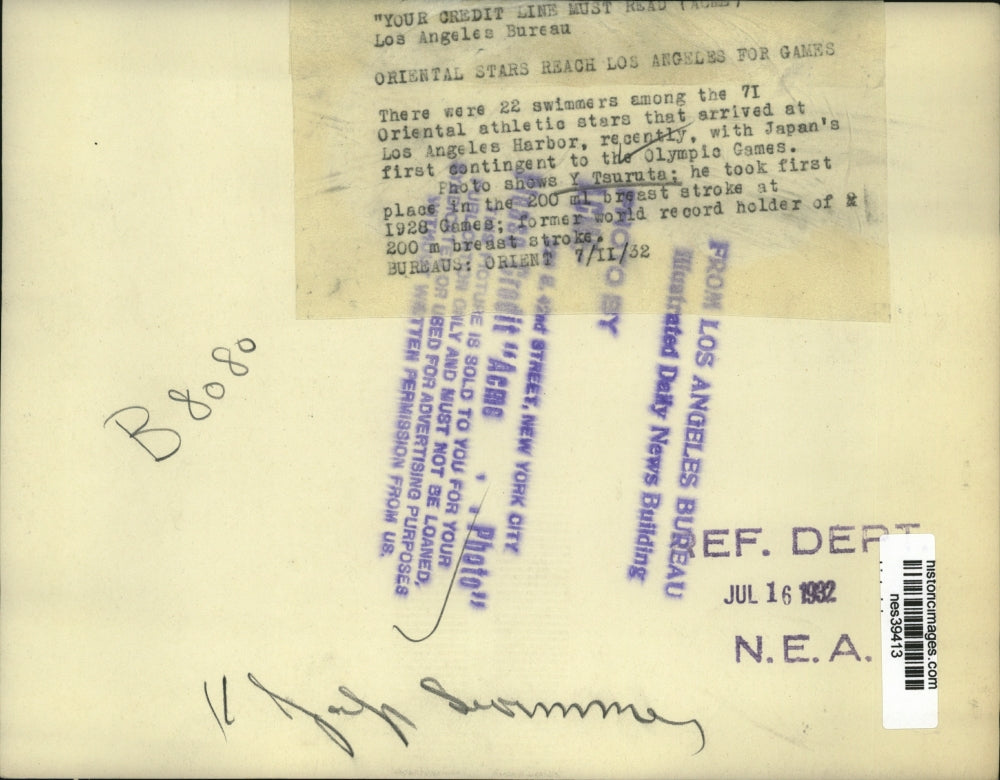 "YOUR CREDIT LINE MUST READ (ACME)
Los Angeles Bureau
ORIENTAL STARS REACH LOS ANGELES FOR GAMES
There were 22 swimmers among the 71
Oriental athletic stars that arrived at
Los Angeles Harbor, recently, with Japan's
first contingent to the Olympic Games.
Photo shows Y Tsuruta; he took first
place in the 200 ml breast stroke at
1928 Games; former world record holder of
200 m breast stroke.
BUREAUS: ORIENT 7/11/32
FROM LOS ANGELES BUREAU
Illustrated Daily News Building
PHOTO BY
ACME
42nd STREET, NEW YORK CITY
Credit "Acme Photo"
PICTURE IS SOLD TO YOU FOR YOUR
ONLY AND MUST NOT BE LOANED,
OR USED FOR ADVERTISING PURPOSES
WRITTEN PERMISSION FROM US.
B 8080
REF. DEPT
JUL 16 1932
N.E.A.
historicimages.com
nes39413
Jap Swimmer